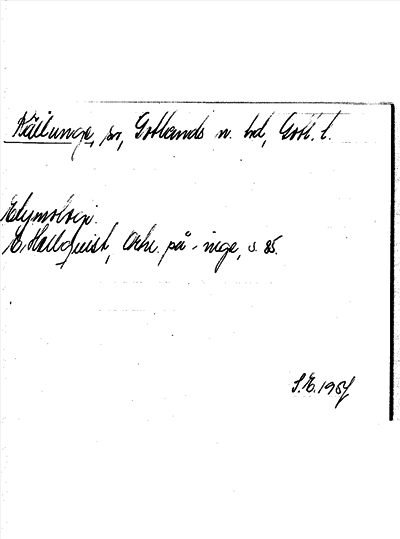 Källunge, sn, Gotlands n. hd, Gotl. l.
Etymologi.
E. Hellquist, Ortn. på -inge, s. 85.
S.E. 1954